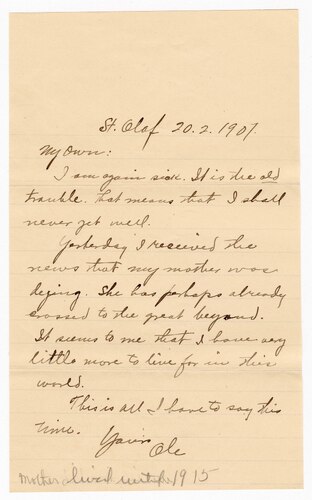 St. Olaf 20.2.1907.
My Own:
I am again sick. It is the old
trouble. That means that I shall
never get well.
Yesterday I received the
news that my mother was
dying. She has perhaps already
crossed to the great beyond.
It seems to me that I have very
little more to live for in this
world.
This is all I have to say this
time.
Yours
Ole
Mother lived until 1915